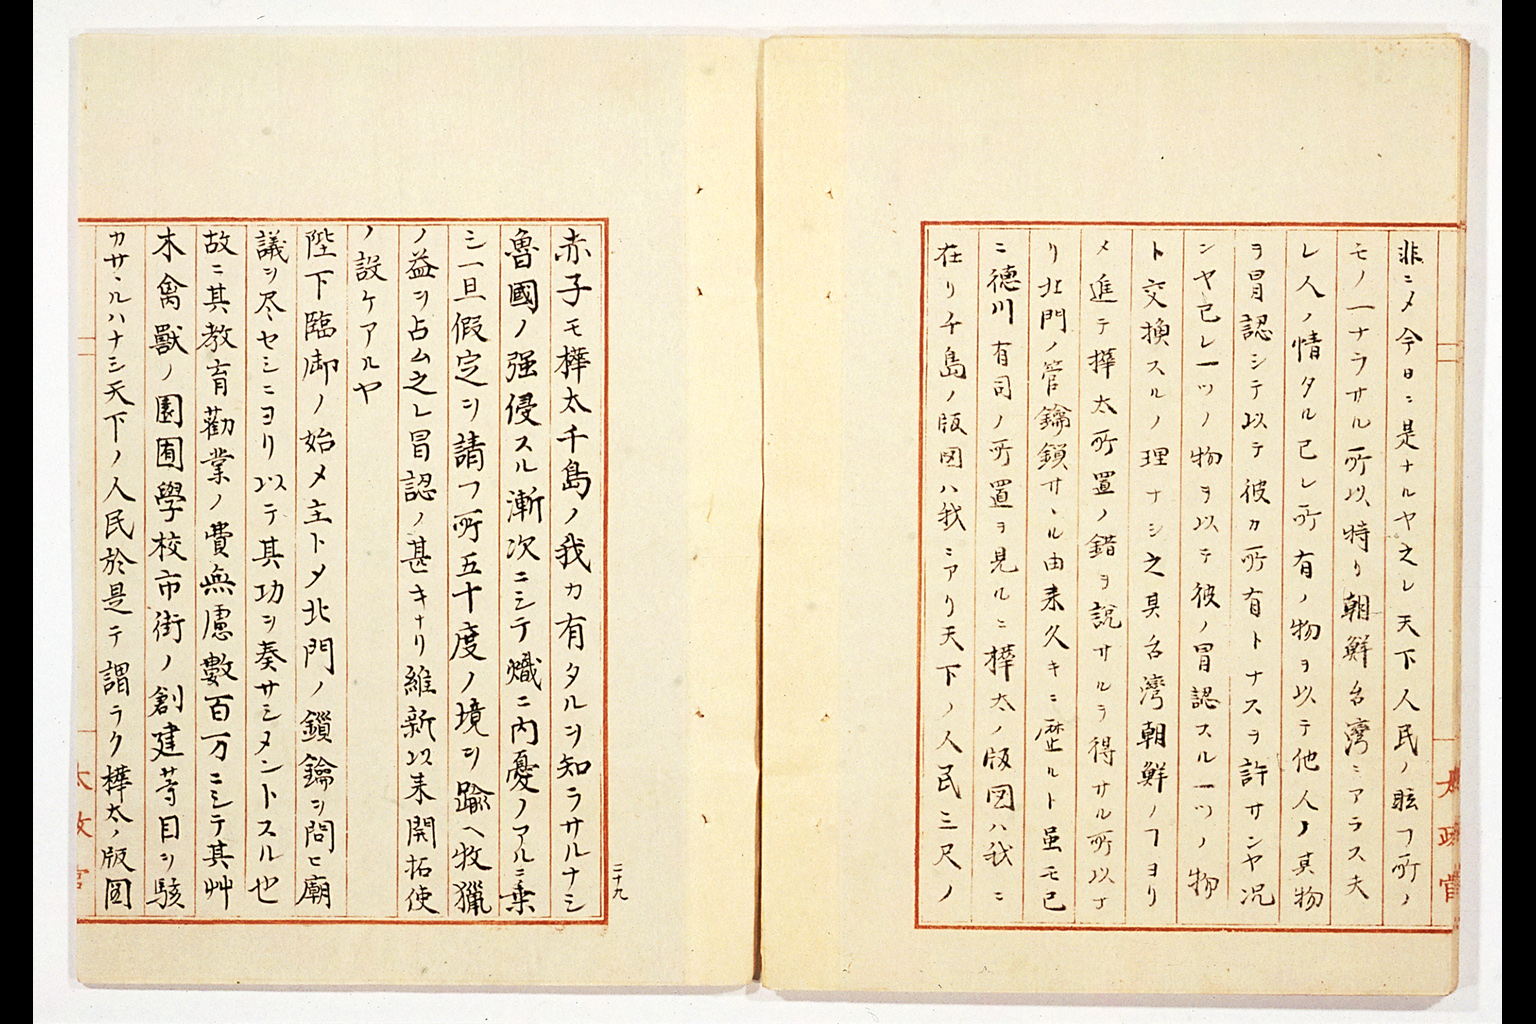 非ニメ今日ニ是ナルヤ之レ天下人民ノ眩フ所ノ
モノ一ナラサル所以特リ朝鮮台湾ニアラス夫
レ人ノ情タル己レ所有ノ物ヲ以テ他人ノ真物
ヲ冒認シテ以テ彼カ所有トナスヲ許サンヤ况
ンヤ己レ一ツノ物ヲ以テ彼ノ冒認スル一ツノ物
ト交換スルノ理ナシ之其台湾朝鮮ノヿヨリ
メ進テ樺太所置ノ錯ヲ説サルヲ得サル所以ナ
リ北門ノ管鑰鎖サヽル由来久キニ歴ルト虽モ已
ニ徳川有司ノ所置ヲ見ルニ樺太ノ版図ハ我ニ
在リ千島ノ版図ハ我ニアリ天下ノ人民三尺ノ
太政官
二十九
赤子モ樺太千島ノ我カ有タルヲ知ラサルナシ
魯國ノ强侵スル漸次ニシテ熾ニ内憂ノアルニ乗
シ一旦假定ヲ請フ所五十度ノ境ヲ踰ヘ牧獵
ノ益ヲ占ム之レ冒認ノ甚キナリ維新以来開拓使
ノ設ケアルヤ
陛下臨御ノ始メ主トメ北門ノ鎖鑰ヲ問ヒ廟
議ヲ尽セシニヨリ以テ其功ヲ奏サシメントスル也
故ニ其教育勸業ノ費無慮數百万ニシテ其艸
木禽獸ノ園囿學校市街ノ創建等目ヲ駭
カサヽルハナシ天下ノ人民於是テ謂ラク樺太ノ版図
太政官